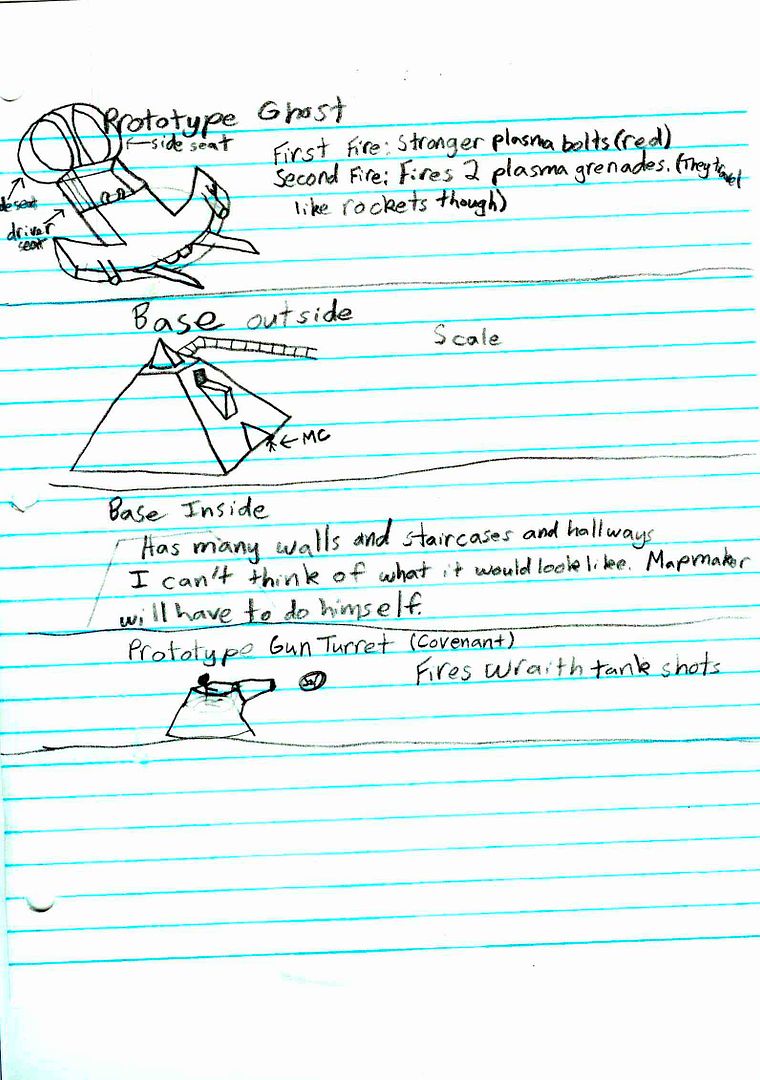 Prototype Ghost
side seat
First Fire: Stronger plasma bolts (red)
Second Fire: Fires 2 plasma grenades. (They travel
like rockets though)
de seat
driver
seat
Base outside
Scale
MC
Base Inside
Has many walls and staircases and hallways
I can't think of what it would look like. Mapmaker
will have to do himself.
Prototype Gun Turret (Covenant)
Fires wraith tank shots